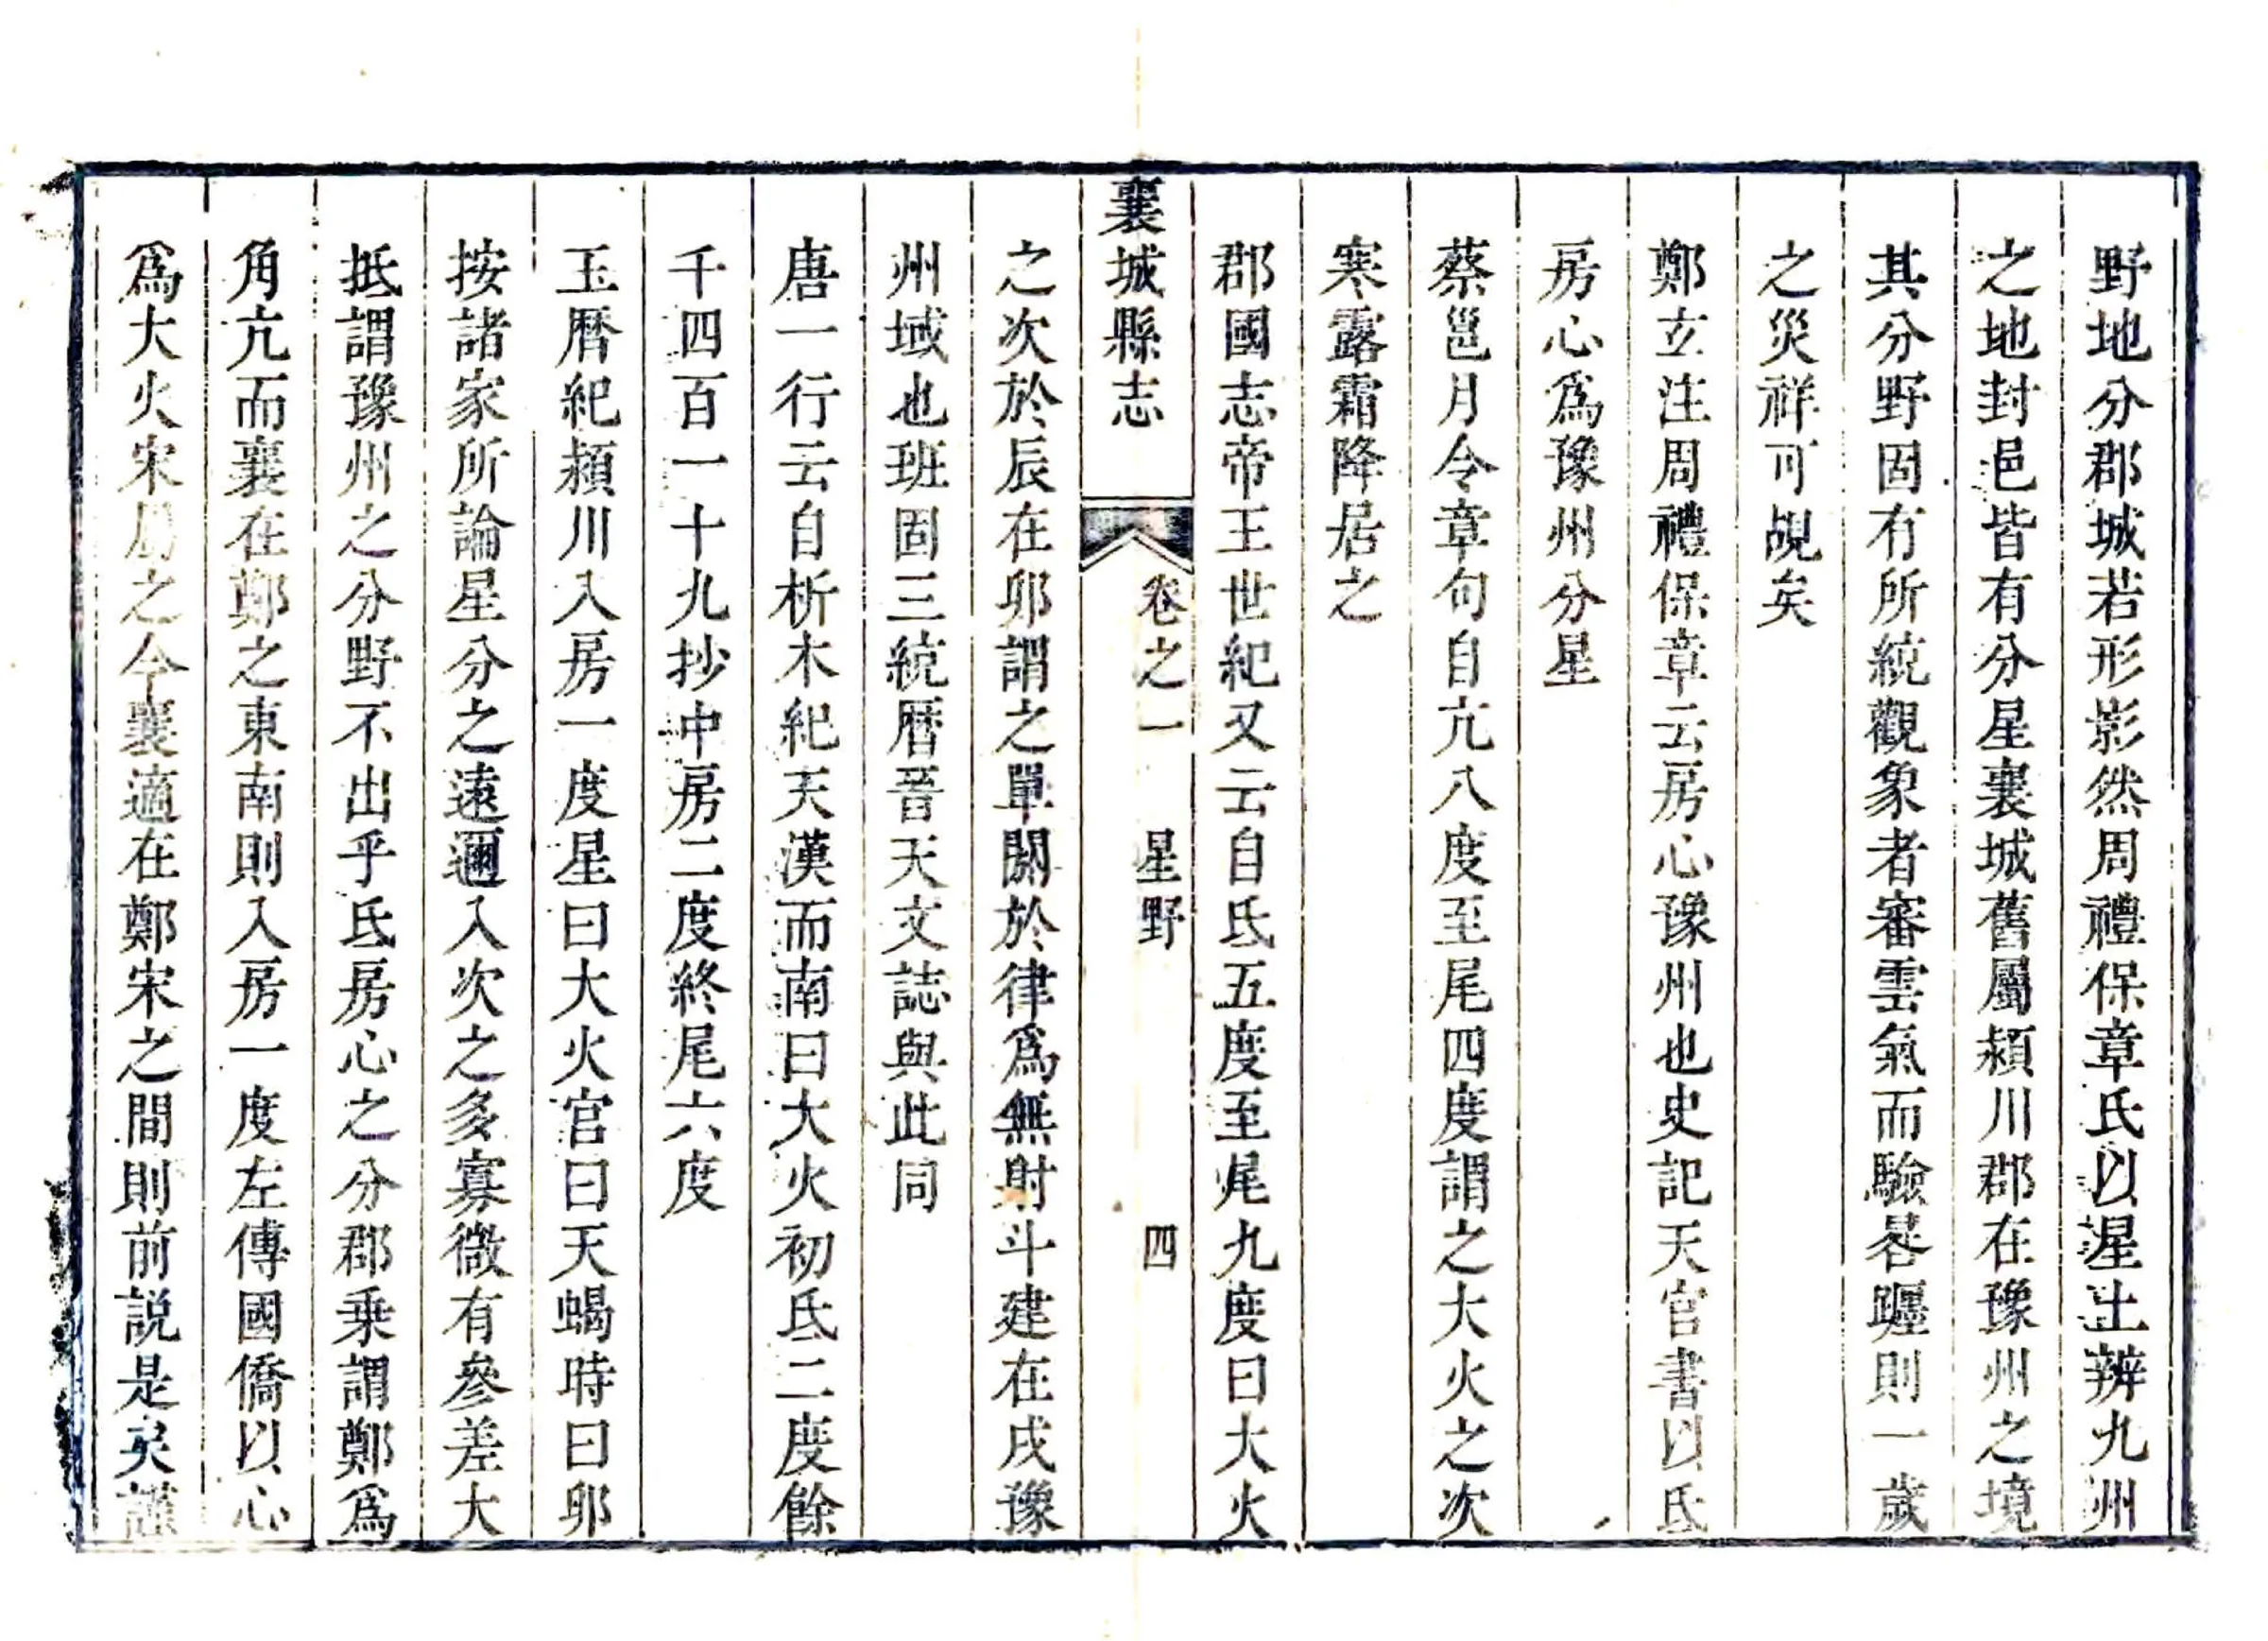 野地分郡城若形影然周禮保章氏以星土辨九州
之地封邑皆有分星襄城舊屬潁川郡在豫州之境
其分野固有所統觀象者審雲氣而驗晷躔則一歲
之災祥可覘矣
鄭玄注周禮保章云房心豫州也史記天官書以氐
房心爲豫州分星
蔡邕月令章句自亢八度至尾四度謂之大火之次
寒露霜降居之
郡國志帝王世紀又云自氐五度至尾九度曰大火
襄城縣志 卷之一 星野 四
之次於辰在卯謂之單閼於律爲無射斗建在戌豫
州域也班固三統曆晉天文誌與此同
唐一行云自析木紀天漢而南曰大火初氐二度餘
千四百一十九抄中房二度終尾六度
玉曆紀潁川入房一度星曰大火宮曰天蝎時曰卯
按諸家所論星分之遠邇入次之多寡微有參差大
抵謂豫州之分野不出乎氐房心之分郡乗謂鄭爲
角亢而襄在鄭之東南則入房一度左傳國僑以心
爲大火宋屬之今襄適在鄭宋之間則前説是矣謹